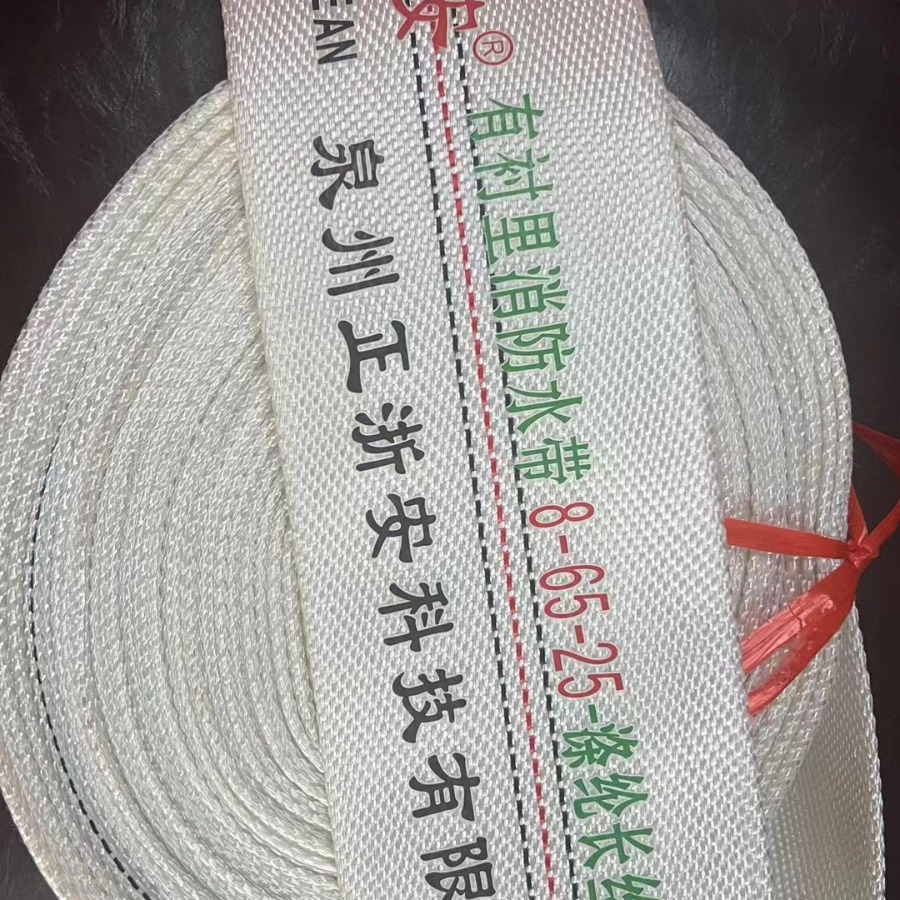 安®
EAN
有衬里消防水带8-65-25-涤纶长
泉州正浙安科技有限